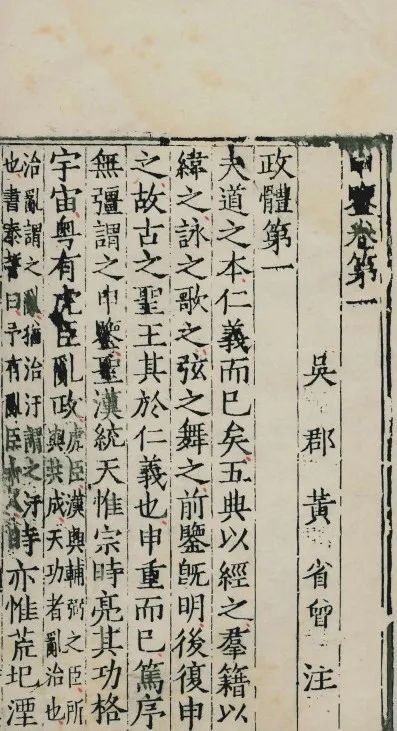 申鑒卷第一
吳郡黃省曾注
政體第一
夫道之本仁義而已矣五典以經之羣籍以
緯之詠之歌之弦之舞之前鑒既明後復申
之故古之聖王其於仁義也申重而已篤序
無彊謂之申鑒聖漢統天惟宗時亮其功格
宇宙粤有虎臣亂政
虎臣漢興輔弼之臣所
與共成天功者亂治也
治亂謂之亂猶治汙謂之汙
也書泰誓曰予有亂臣
時亦惟荒圮湮